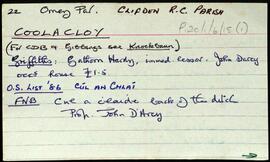 22 Omey Par. CLIFDEN R.C. PARISH
P120/1/6/15(1)
COOLACLOY
(For CDB & Gibbings see Knockbaun)
Griffiths: Gathorn Hardy, immed. lessor. John Darcy
occ'd house £1-5
O.S. LIST '86 CÚL AN CHLAÍ
FNB Cúl a' claidhe back of the ditch
Prop. John D'Arcy